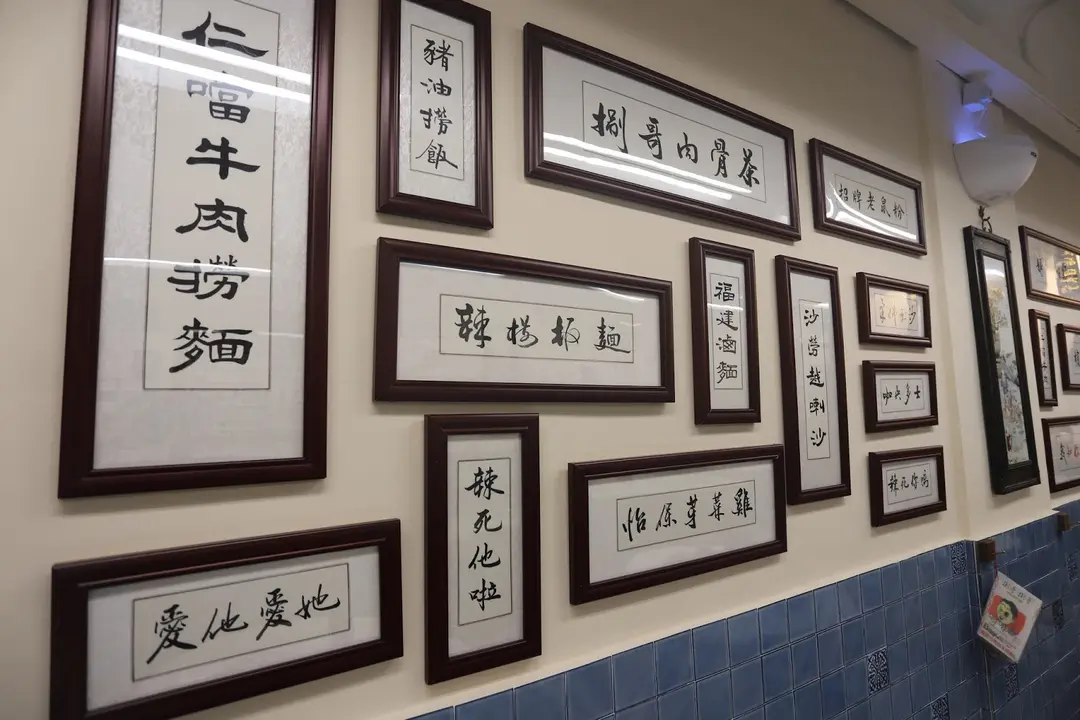 仁噹牛肉撈麵
豬油撈飯
捌哥肉骨茶
招牌老鼠粉
辣摟板麵
福建滷麵
沙勞越喇沙
咖央多士
辣死他啦
怡保芽菜雞
辣死你媽
愛他愛她